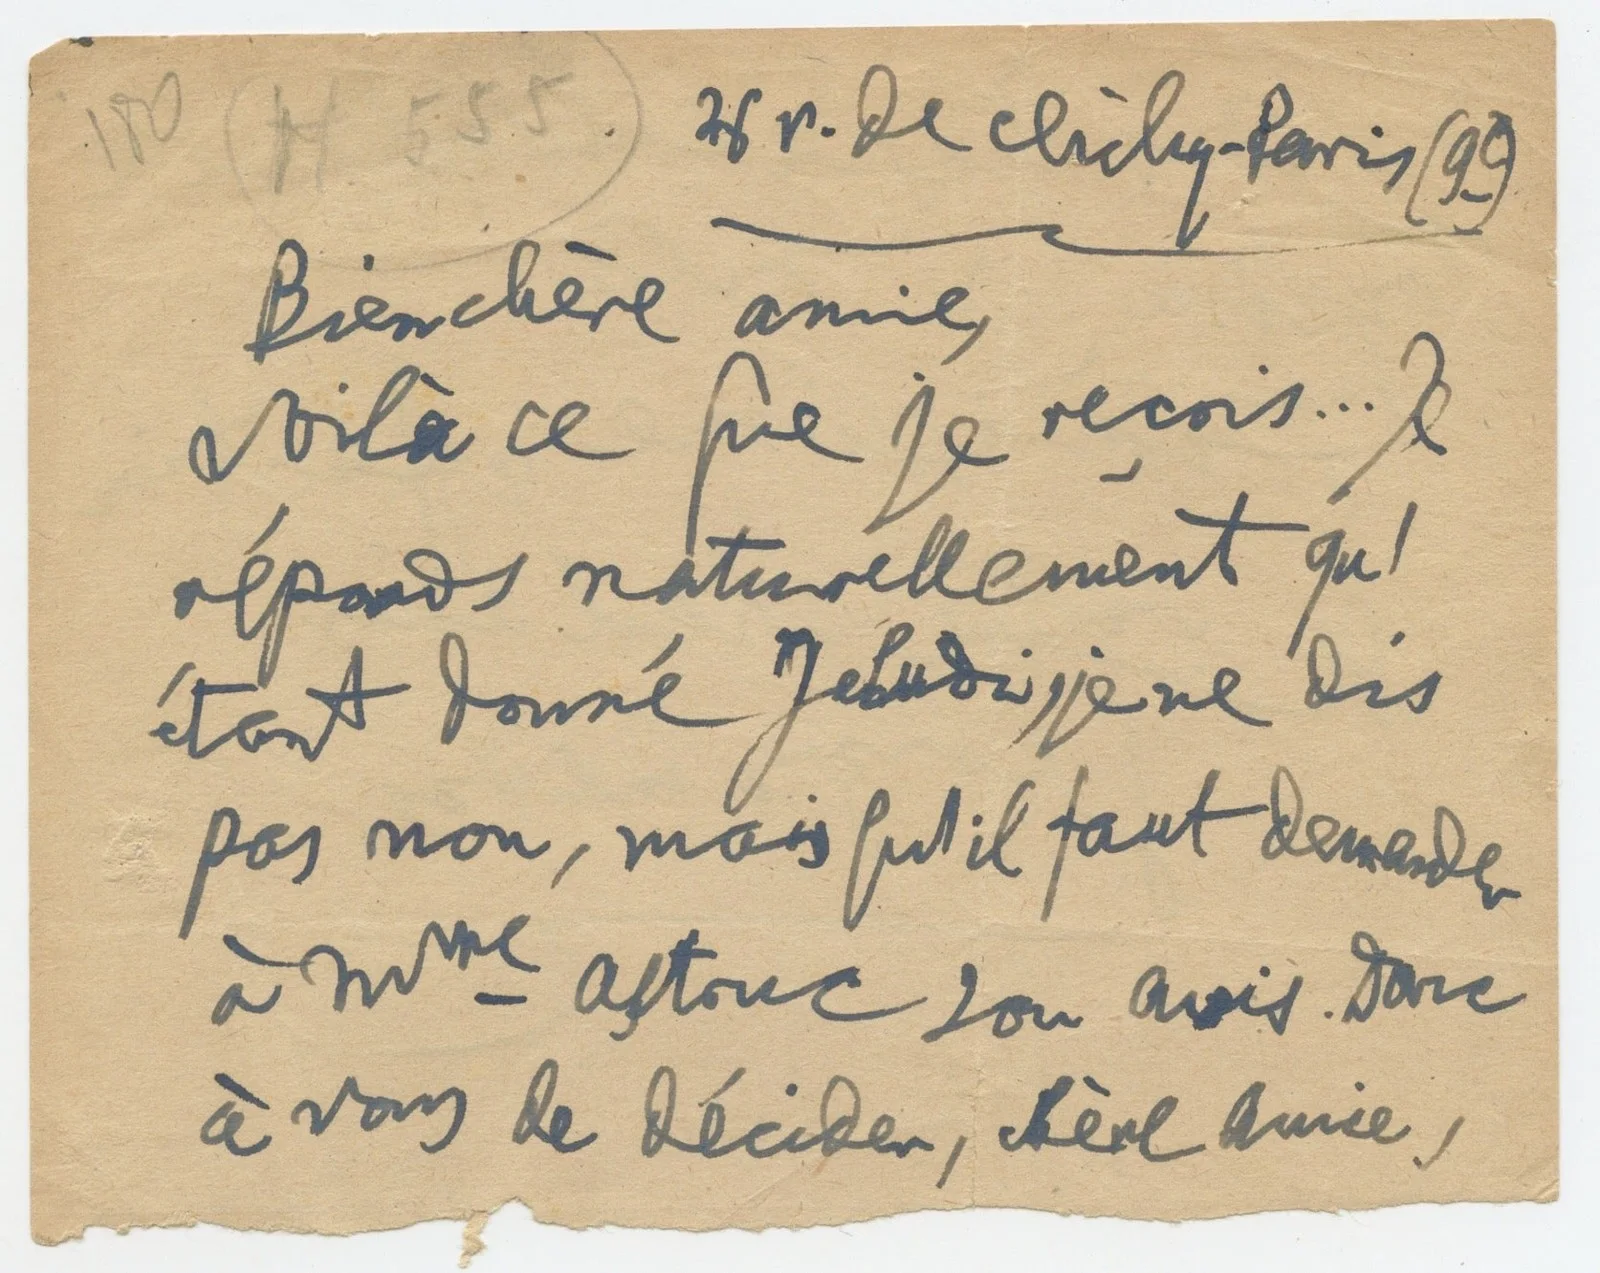 180 (H 555)
28 r. de Clichy-Paris (9e)
Bien chère amie,
Voilà ce que je reçois... Je
réponds naturellement qu'
étant donné Yehudi, je ne dis
pas non, mais qu'il faut demander
à Mme Astruc son avis. Donc
à vous de décider, chère amie,